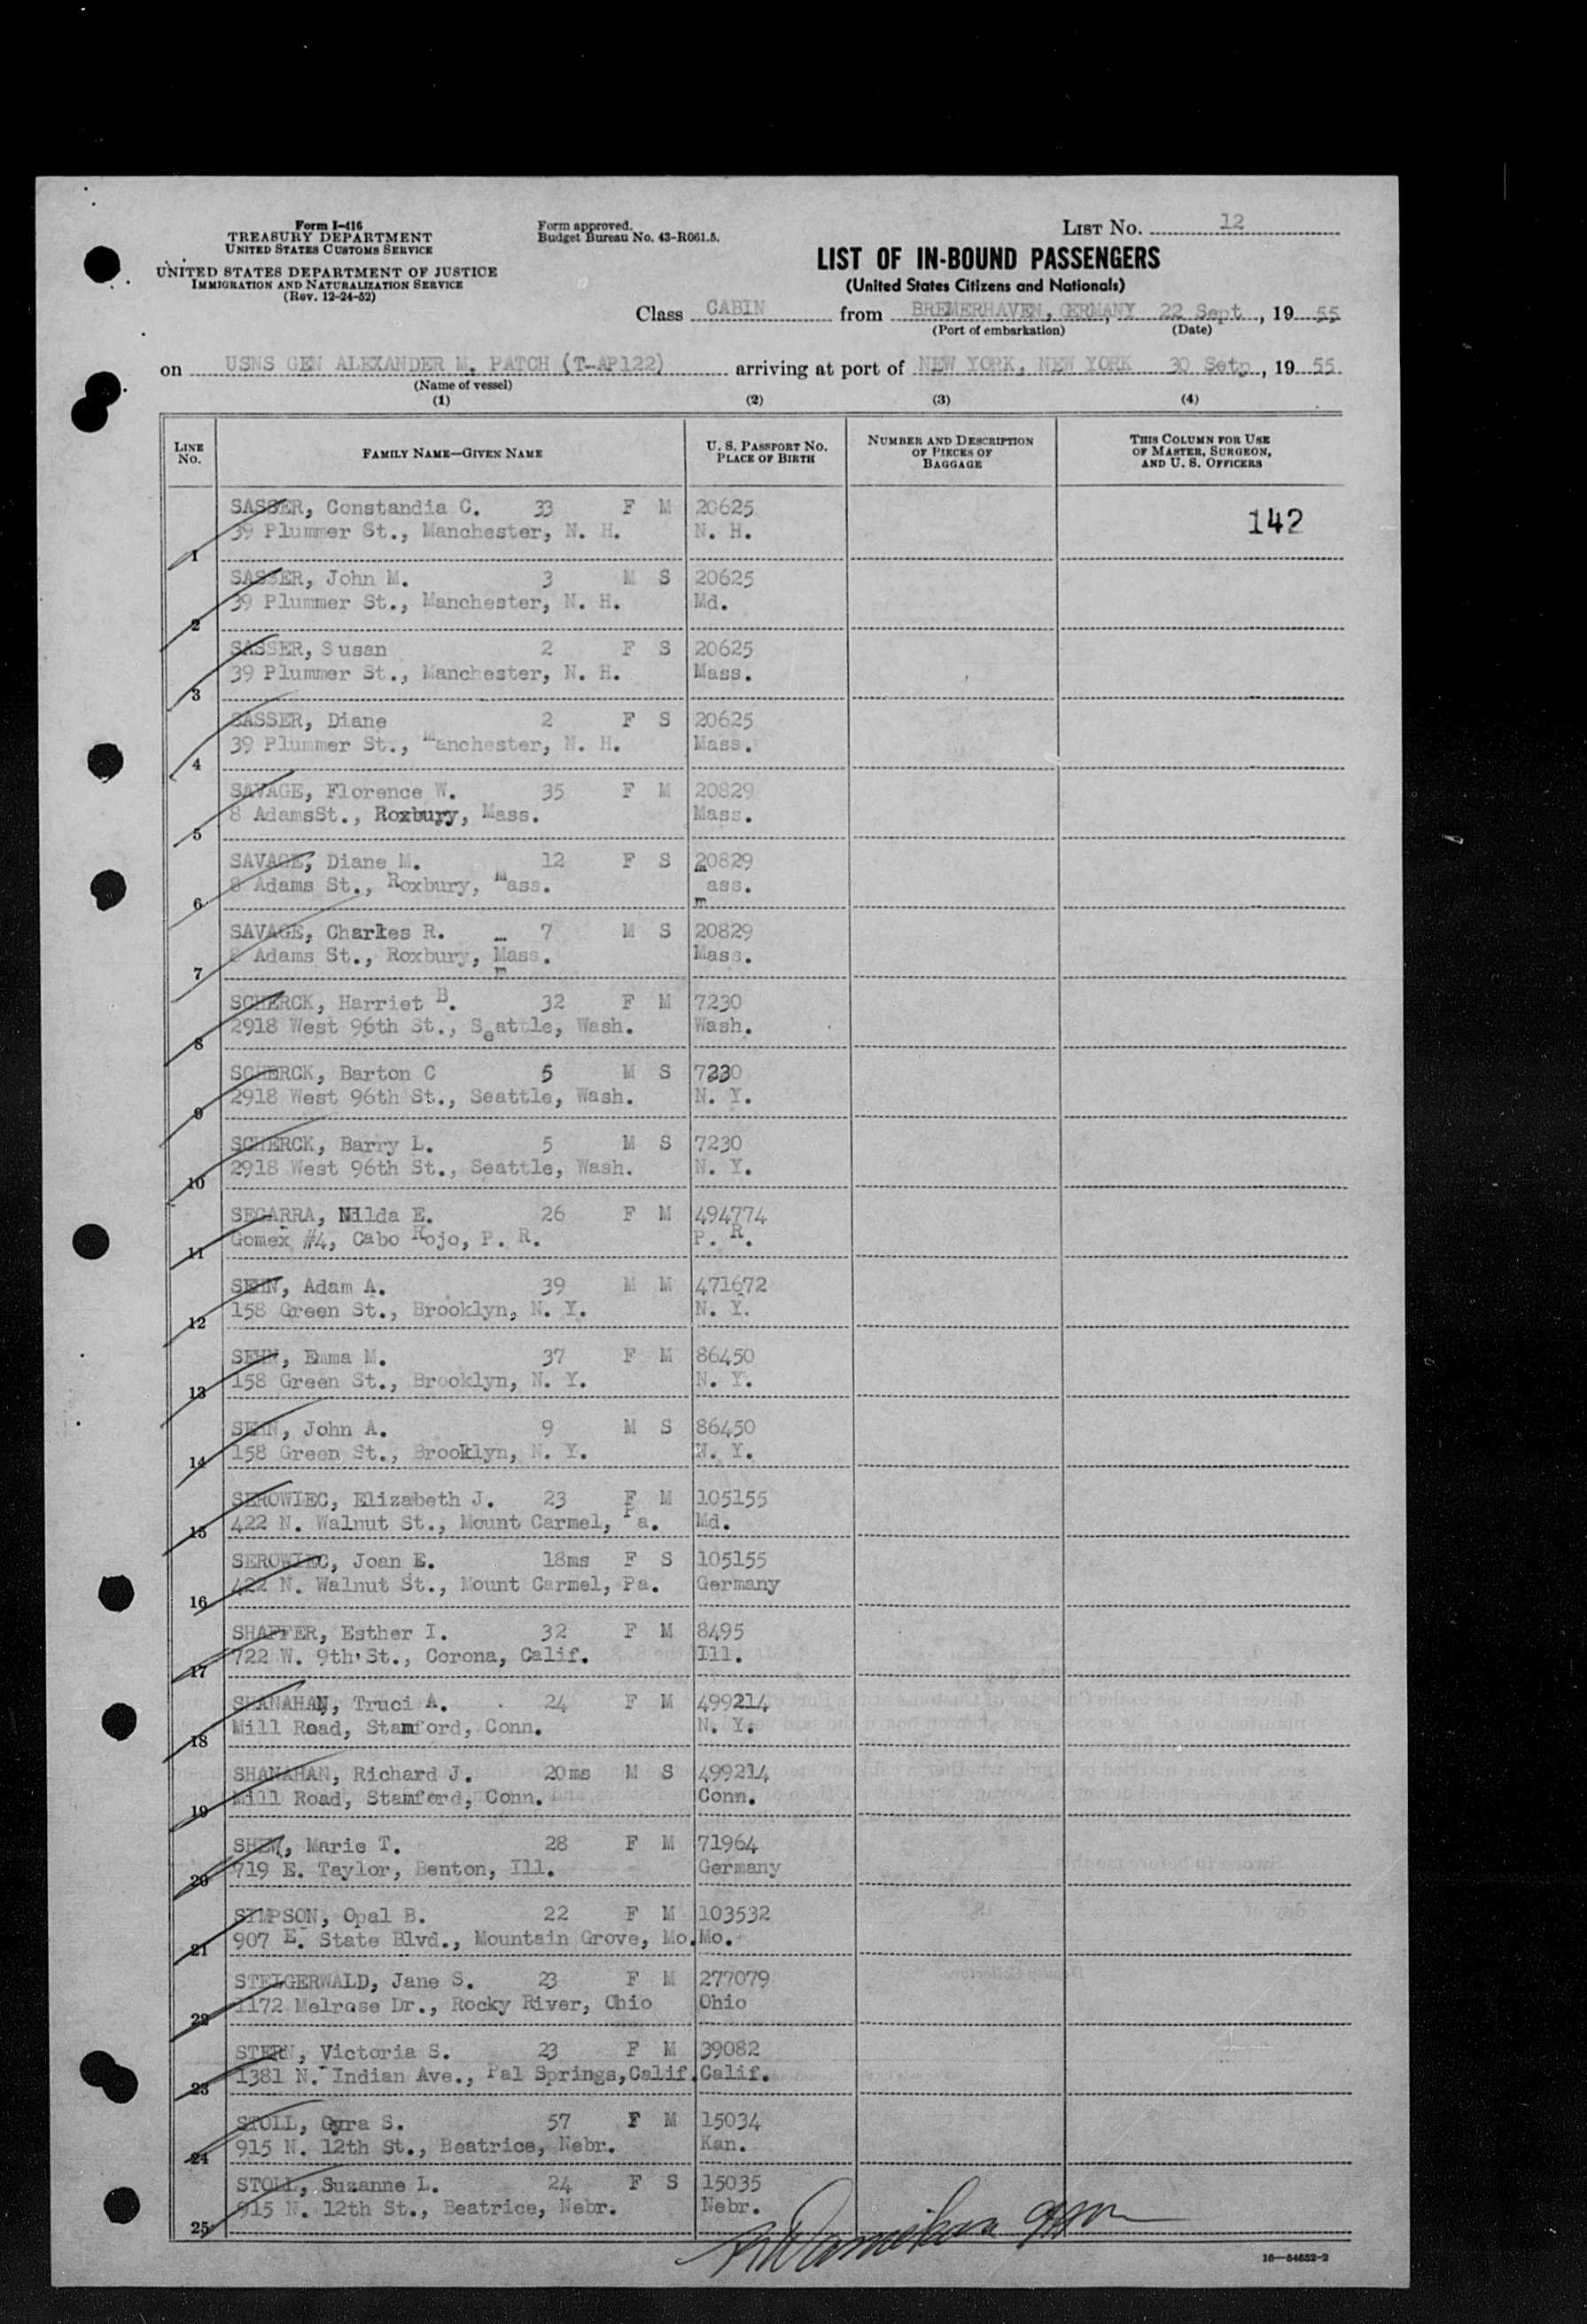 Form I-416
TREASURY DEPARTMENT
UNITED STATES CUSTOMS SERVICE
UNITED STATES DEPARTMENT OF JUSTICE
IMMIGRATION AND NATURALIZATION SERVICE
(Rev. 12-24-52)
Form approved.
Budget Bureau No. 43-R061.5.
LIST No. 12
LIST OF IN-BOUND PASSENGERS
(United States Citizens and Nationals)
Class CABIN from BREMERHAVEN, GERMANY, 22 Sept, 19 55
(Port of embarkation) (Date)
on USNS GEN ALEXANDER M. PATCH (T-AP122) arriving at port of NEW YORK, NEW YORK 30 Setp, 19 55
(Name of vessel)
(1) (2) (3) (4)
LINE No. FAMILY NAME—GIVEN NAME U. S. PASSPORT No. PLACE OF BIRTH NUMBER AND DESCRIPTION OF PIECES OF BAGGAGE THIS COLUMN FOR USE OF MASTER, SURGEON, AND U. S. OFFICERS
SASSER, Constandia C. 33 F M 20625 142
1 39 Plummer St., Manchester, N. H. N. H.
SASSER, John M. 3 M S 20625
2 39 Plummer St., Manchester, N. H. Md.
SASSER, Susan 2 F S 20625
3 39 Plummer St., Manchester, N. H. Mass.
SASSER, Diane 2 F S 20625
4 39 Plummer St., Manchester, N. H. Mass.
SAVAGE, Florence W. 35 F M 20829
5 8 AdamsSt., Roxbury, Mass. Mass.
SAVAGE, Diane M. 12 F S 20829
6 8 Adams St., Roxbury, Mass. Mass.
SAVAGE, Charles R. 7 M S 20829
7 8 Adams St., Roxbury, Mass. Mass.
SCHERCK, Harriet B. 32 F M 7230
8 2918 West 96th St., Seattle, Wash. Wash.
SCHERCK, Barton C 5 M S 7230
9 2918 West 96th St., Seattle, Wash. N. Y.
SCHERCK, Barry L. 5 M S 7230
10 2918 West 96th St., Seattle, Wash. N. Y.
SEGARRA, Nilda E. 26 F M 494774
11 Gomex #4, Cabo Rojo, P. R. P. R.
SEHN, Adam A. 39 M M 471672
12 158 Green St., Brooklyn, N. Y. N. Y.
SEHN, Emma M. 37 F M 86450
13 158 Green St., Brooklyn, N. Y. N. Y.
SEHN, John A. 9 M S 86450
14 158 Green St., Brooklyn, N. Y. N. Y.
SEROWIEC, Elizabeth J. 23 F M 105155
15 422 N. Walnut St., Mount Carmel, Pa. Md.
SEROWIEC, Joan E. 18ms F S 105155
16 422 N. Walnut St., Mount Carmel, Pa. Germany
SHAFFER, Esther I. 32 F M 8495
17 722 W. 9th St., Corona, Calif. Ill.
SHANAHAN, Truci A. 24 F M 499214
18 Mill Road, Stamford, Conn. N. Y.
SHANAHAN, Richard J. 20ms M S 499214
19 Mill Road, Stamford, Conn. Conn.
SHEW, Marie T. 28 F M 71964
20 719 E. Taylor, Benton, Ill. Germany
SIMPSON, Opal B. 22 F M 103532
21 907 E. State Blvd., Mountain Grove, Mo. Mo.
STEIGERWALD, Jane S. 23 F M 277079
22 1172 Melrose Dr., Rocky River, Ohio Ohio
STERN, Victoria S. 23 F M 39082
23 1381 N. Indian Ave., Pal Springs,Calif. Calif.
STOLL, Gyra S. 57 F M 15034
24 915 N. 12th St., Beatrice, Nebr. Kan.
STOLL, Suzanne L. 24 F S 15035
25 915 N. 12th St., Beatrice, Nebr. Nebr.
16—54652-2